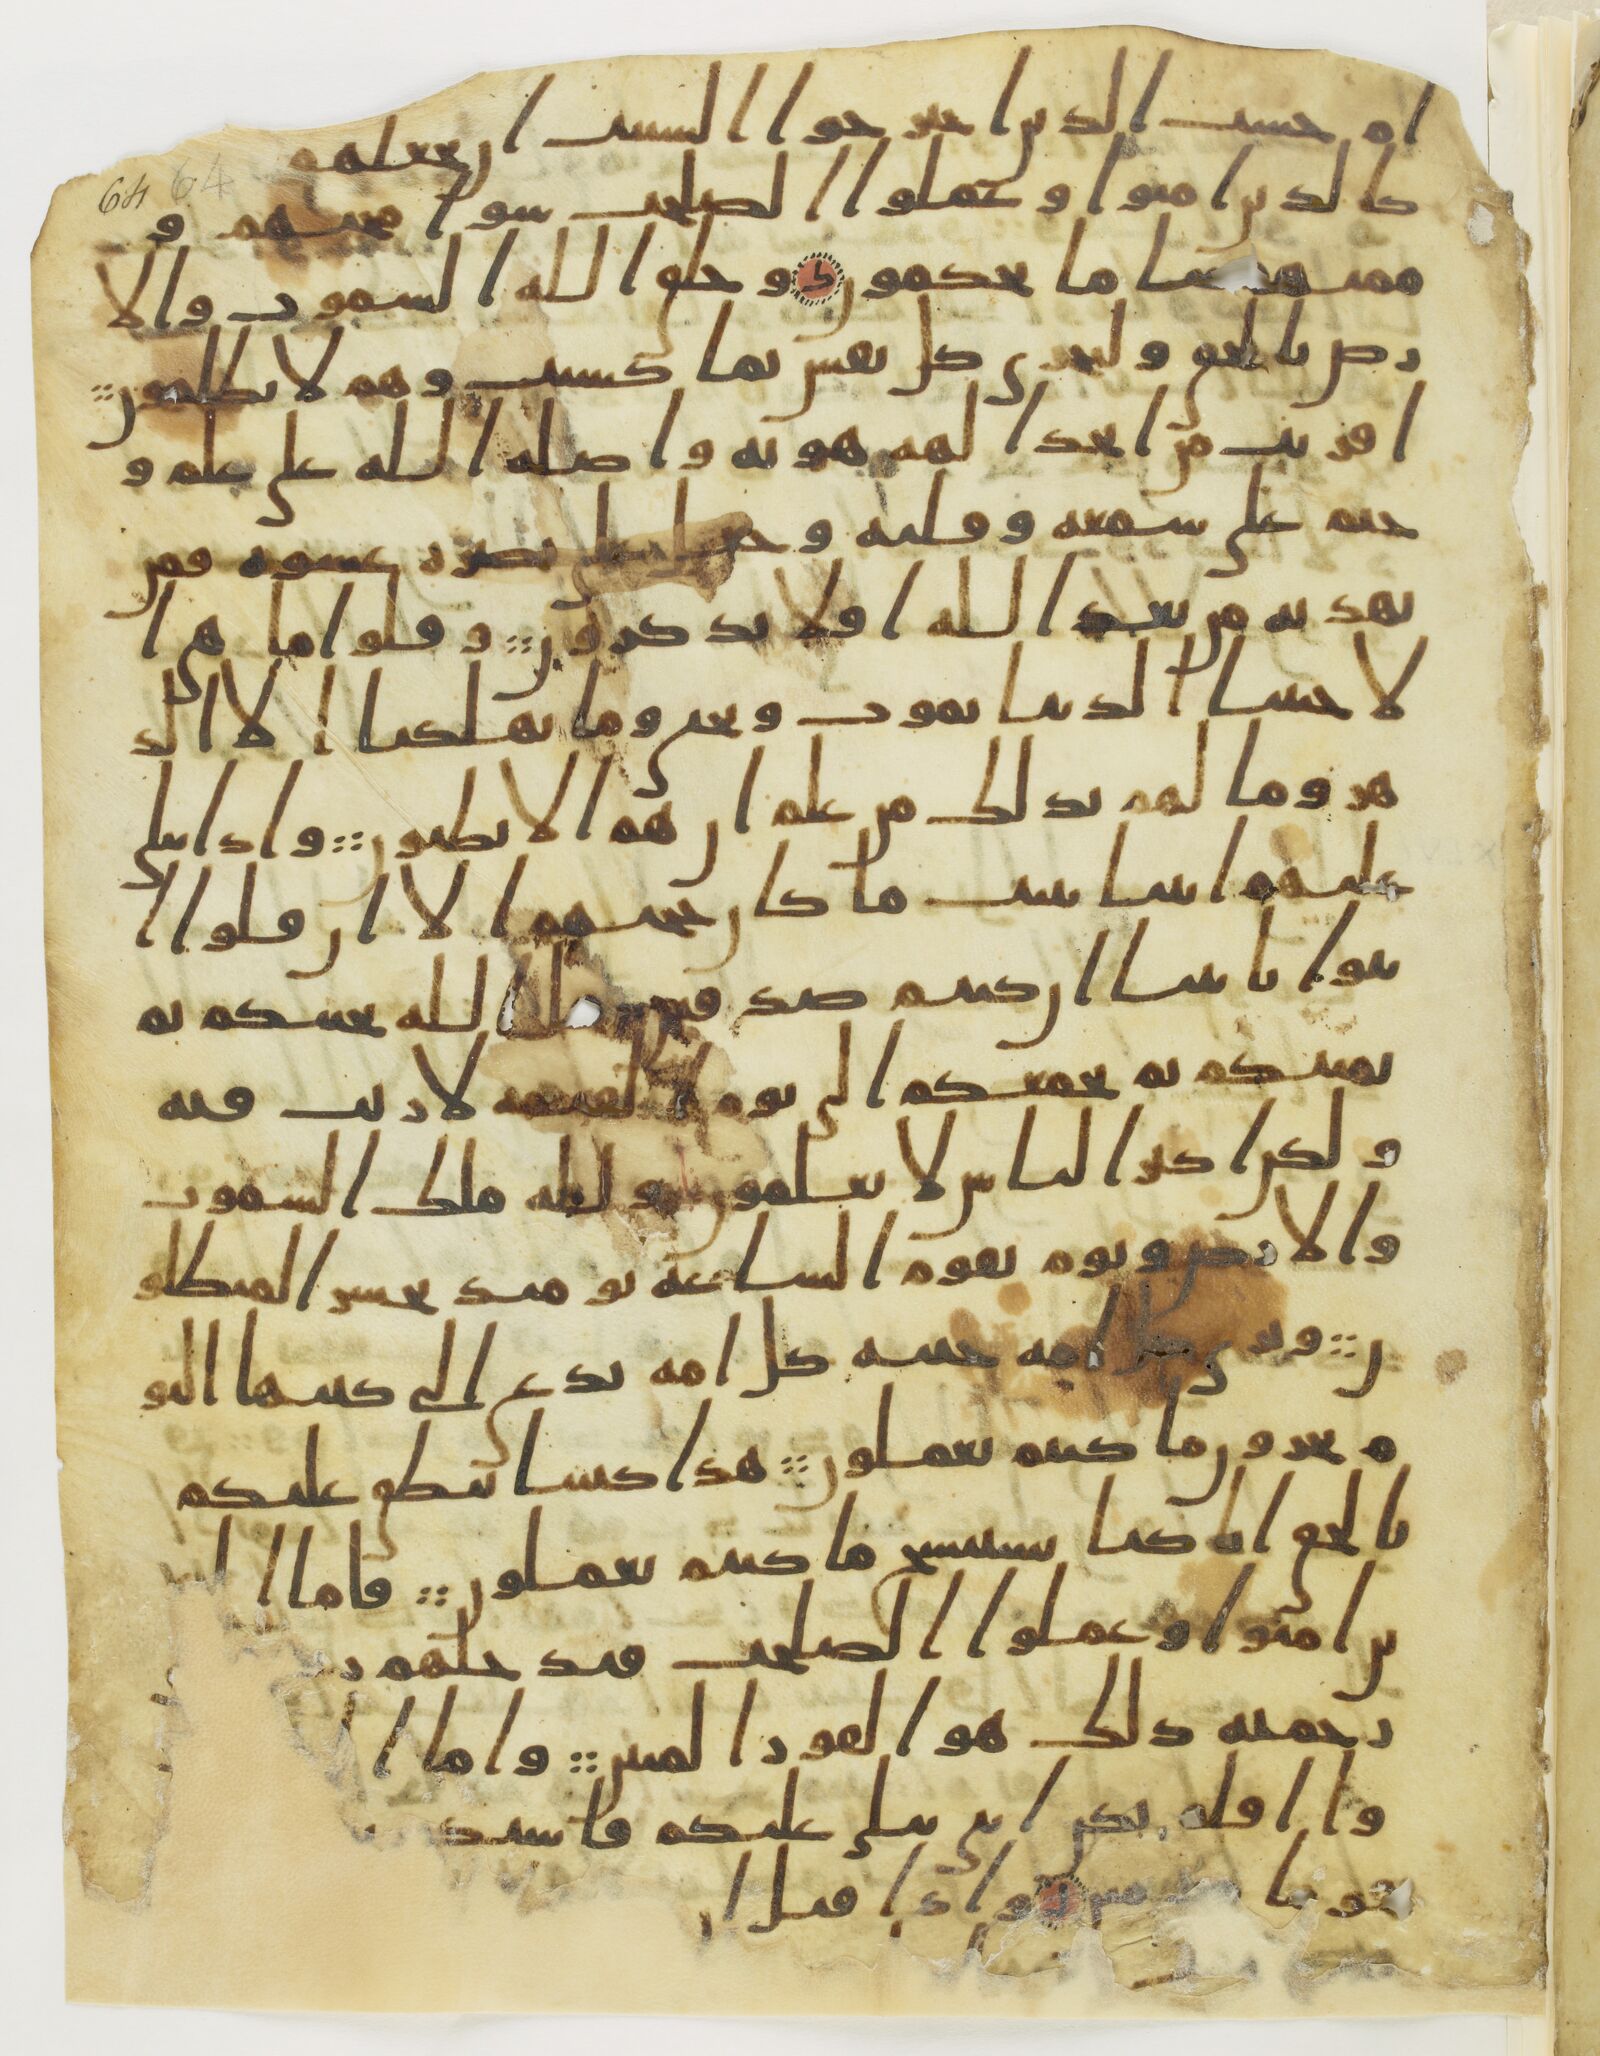 64 64
ام حسب الذين اجترحوا السيت ان نجعلهم
كالذين امنوا وعملوا الصلحت سوا محيهم و
ممتهم سا ما يحكمون وخلق الله السموت والا
رض بالحق ولتجزى كل نفس بما كسبت وهم لا يظلمون
افريت من اتخذ الهه هويه واضله الله على علم و
ختم على سمعه وقلبه وجعل على بصره غشوه فمن
يهديه من بعد الله افلا تذكرون وقلوا ما هي ا
لا حيتنا الدنيا نموت ونحيى وما يهلكنا الا الد
هر وما لهم بذلك من علم ان هم الا يظنون واذا تتلى
عليهم ايتنا بينت ما كان حجتهم الا ان قلوا ا
يتوا باباينا ان كنتم صدقين قل الله يحييكم ثم
يميتكم ثم يجمعكم الى يوم القيمه لا ريب فيه
ولكن اكثر الناس لا يعلمون ولله ملك السموت
والارض ويوم تقوم الساعه يومئذ يخسر المبطلو
ن وترى كل امه جثيه كل امه تدعى الى كتبها اليو
م تجزون ما كنتم تعملون هذا كتبنا ينطق عليكم
بالحق انا كنا نستنسخ ما كنتم تعملون فاما ا
ين امنوا وعملوا الصلحت فيدخلهم ر
رحمته ذلك هو الفوز المبين واما ا
وا افلم تكن ايتي تتلى عليكم فاستك
قوما واذا قيل ان